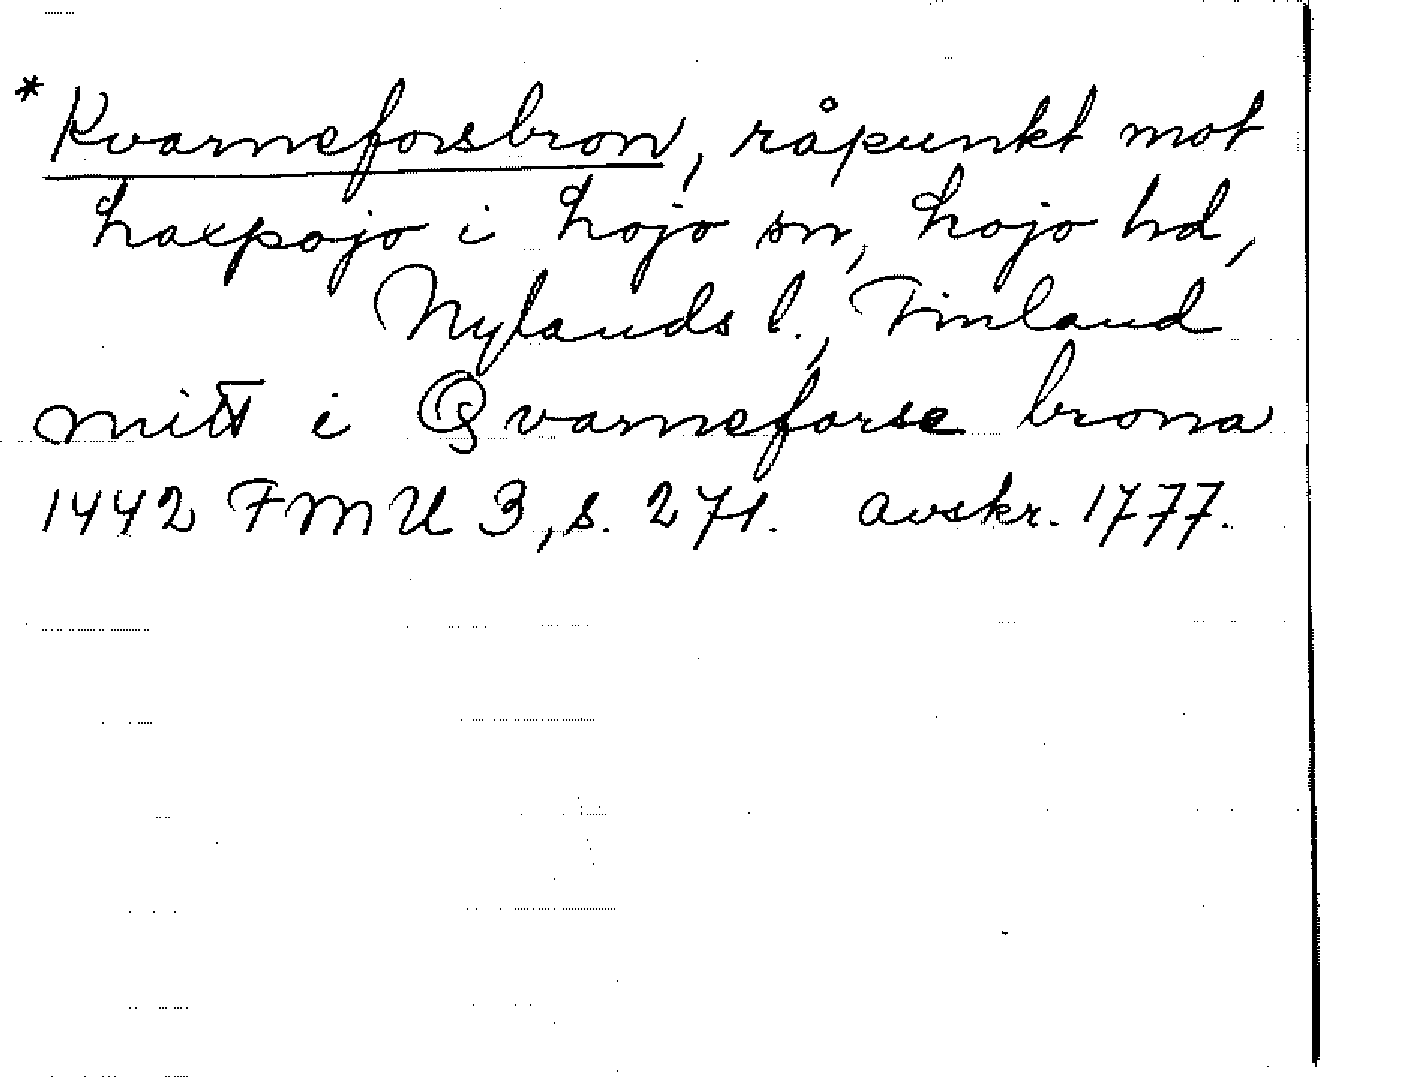 * Kvarneforsbron, råpunkt mot
Laxpojo i Lojo sn, Lojo hd,
Nylands l., Finland
mitt i Qvarneforse brona
1442 FMU 3, s. 271. avskr. 1777.